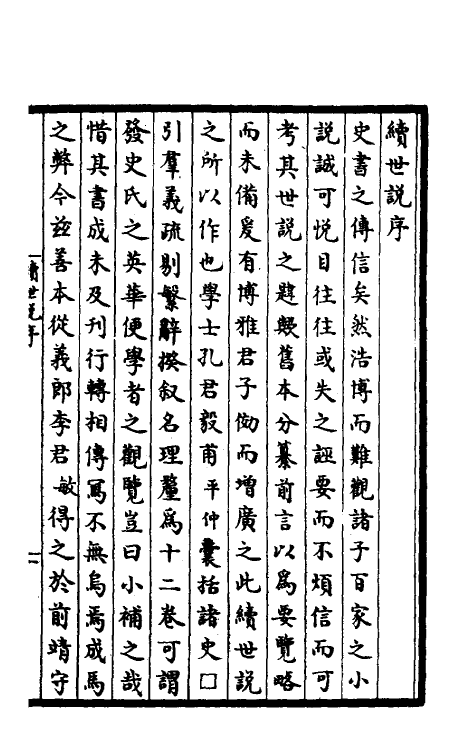 續世說序
史書之傳信矣然浩博而難觀諸子百家之小
說誠可悅目往往或失之誣要而不煩信而可
考其世說之題歟舊本分纂前言以為要覽略
而未備爰有博雅君子㘭而增廣之此續世說
之所以作也學士孔君毅甫平仲囊括諸史□
引羣義疏剔繁辭揆叙名理釐為十二卷可謂
發史氏之英華便學者之觀覽豈曰小補之哉
惜其書成未及刊行轉相傳寫不無烏焉成馬
之弊今茲善本從義郎李君敏得之於前靖守
續世說序
一